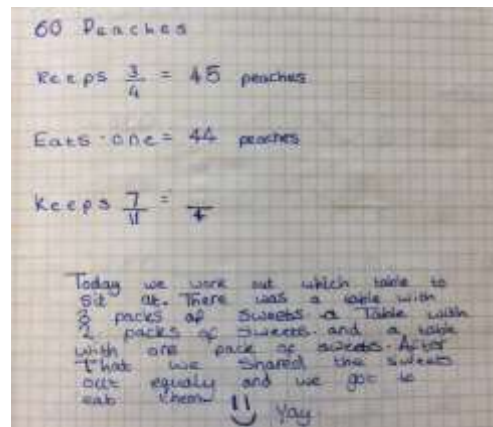 60 Peaches
Keeps 3/4 = 45 peaches
Eats one = 44 peaches
Keeps 7/11 = /4
Today we work out which table to
sit at. There was a table with
3 packs of sweets a Table with
2 packs of sweets and a table
with one pack of sweets. After
that we shared the sweets
out equaly and we got to
eat them
Yay